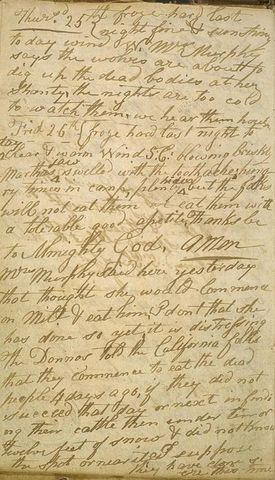 Thursd 25th froze hard last
night fine & sunshiny
to day wind W. Mrs Murphy
says the wolves are about to
dig up the dead bodies at her
shanty, the nights are too cold
to watch them, we hear them howl
Frid 26th froze hard last night to
day clear & warm Wind S.E. blowing briskly
Marthas jaw swelled with the toothache; hung
ry times in camp, plenty hides but the folks
will not eat them we eat them with
a tolerable good apetite. Thanks be
to Almighty God. Amen
Mrs Murphy said here yesterday
that thought she would commence
on Milt. & eat him. I dont that she
has done so yet, it is distressing
The Donnos told the California folks
that they commence to eat the dead
people 4 days ago, if they did not
succeed that day or next in find
ing their cattle then under ten or
twelve feet of snow & did not know
the spot or near it, I suppose
they have done so
ere this time